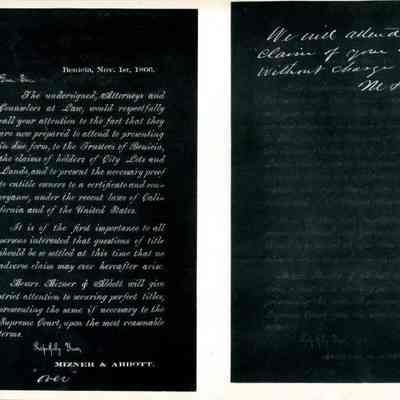 Benicia, Nov. 1st, 1866.
Dear Sir:
The undersigned, Attorneys and
Counselors at Law, would respectfully
call your attention to the fact that they
are now prepared to attend to presenting
in due form, to the Trustees of Benicia,
the claims of holders of City Lots and
Lands, and to present the necessary proof
to entitle owners to a certificate and con-
veyance, under the recent laws of Cali-
fornia and of the United States.
It is of the first importance to all
persons interested that questions of title
should be settled at this time that no
adverse claim may ever hereafter arise.
Messrs. Mizner & Abbott will give
strict attention to securing perfect titles,
presenting the same if necessary to the
Supreme Court, upon the most reasonable
terms.
Resp'fly Yours,
MIZNER & ABBOTT.
"over"
We will attend
claim of your
without charge
M &